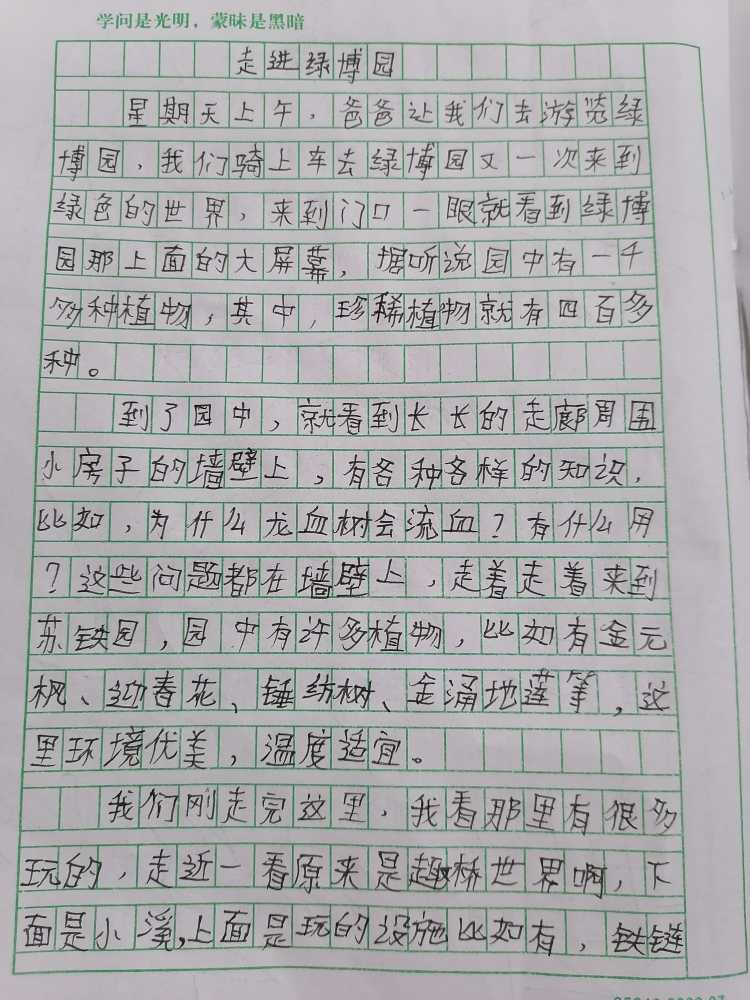 学问是光明，蒙昧是黑暗
走进绿博园
星期天上午，爸爸让我们去游览绿
博园，我们骑上车去绿博园又一次来到
绿色的世界，来到门口一眼就看到绿博
园那上面的大屏幕，据听说园中有一千
多种植物，其中，珍稀植物就有四百多
种。
到了园中，就看到长长的走廊周围
小房子的墙壁上，有各种各样的知识，
比如，为什么龙血树会流血？有什么用
？这些问题都在墙壁上，走着走着来到
苏铁园，园中有许多植物，比如有金元
枫、迎春花、锤纺树、金涌地莲等，这
里环境优美，温度适宜。
我们刚走完这里，我看那里有很多
玩的，走近一看原来是趣桥世界啊，下
面是小溪，上面是玩的设施比如有，铁链